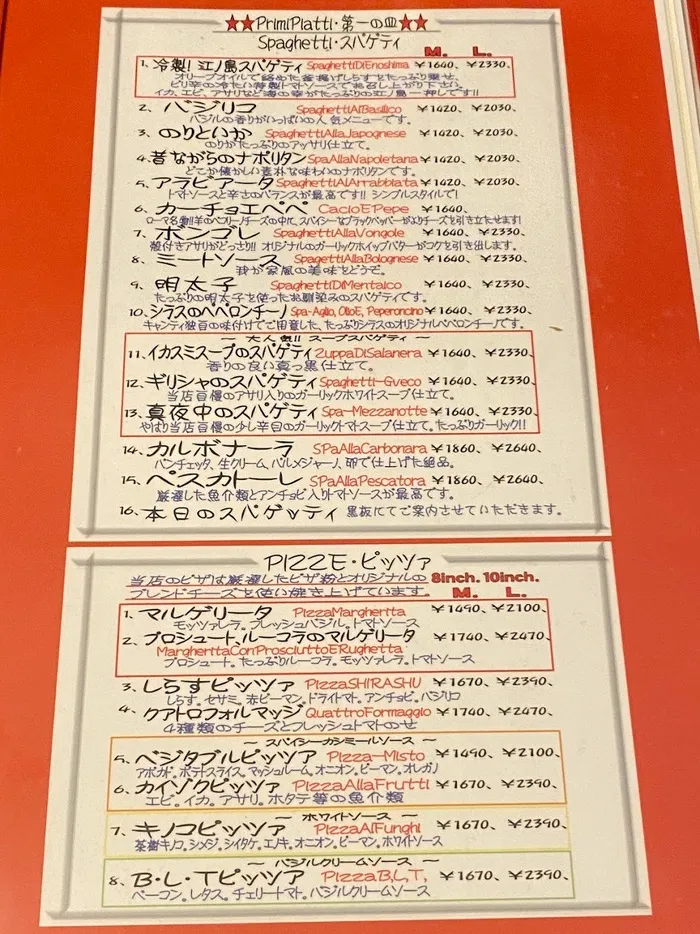 ★★PrimiPiatti・第一の皿★★
Spaghetti・スパゲティ
M. L.
1. 冷製! 江ノ島スパゲティ SpaghettiDiEnoshima ￥1640、￥2330、
オリーブオイルで絡めた釜揚げしらすをたっぷり乗せ、
ピリ辛の冷たい特製トマトソースでお召し上がり下さい。
イカ、エビ、アサリなど海の幸がたっぷりの江ノ島一押しです!!
2. バジリコ SpaghettiAlBasilico ￥1420、￥2030、
バジルの香りがいっぱいの人気メニューです。
3. のりといか SpaghettiAllaJapognese ￥1420、￥2030、
のりがたっぷりのアッサリ仕立て。
4. 昔ながらのナポリタン SpaAllaNapoletana ￥1420、￥2030、
どこか懐かしい素朴な味わいのナポリタンです。
5. アラビアータ SpaghettiAlArrabbiata ￥1420、￥2030、
トマトソースと辛さのバランスが最高です!! シンプルスタイルで!
6. カーチョエペペ CacioE'Pepe ￥1640、
ローマ名物!!羊のペコリーノチーズの中に、スパイシーなブラックペッパーがよりチーズを引き立たせます!
7. ボンゴレ SpaghettiAllaVongole ￥1640、￥2330、
殻付きアサリがどっさり!! オリジナルのガーリックホイップバターがコクを引き出します。
8. ミートソース SpagettiAllaBolognese ￥1640、￥2330、
我が家風の美味をどうぞ。
9. 明太子 SpaghettiDiMentaico ￥1640、￥2330、
たっぷりの明太子を使ったお馴染みのスパゲティです。
10. シラスのペペロンチーノ Spa-Aglio, OlioE, Peperoncino ￥1640、￥2330、
キャンティ独自の味付けでご用意した、たっぷりシラスのオリジナルペペロンチーノです。
～ 大人気!! スープスパゲティ ～
11. イカスミスープのスパゲティ ZuppaDiSalanera ￥1640、￥2330、
香りの良い真っ黒仕立て。
12. ギリシャのスパゲティ Spaghetti-Gveco ￥1640、￥2330、
当店自慢のアサリ入りのガーリックホワイトスープ仕立て。
13. 真夜中のスパゲティ Spa-Mezzanotte ￥1640、￥2330、
やはり当店自慢の少し辛目のガーリックトマトスープ仕立て。たっぷりガーリック!!
14. カルボナーラ SPaAllaCarbonara ￥1860、￥2640、
パンチェッタ、生クリーム、パルメジャーノ、卵で仕上げた絶品。
15. ペスカトーレ SPaAllaPescatora ￥1860、￥2640、
厳選した魚介類とアンチョビ入りトマトソースが最高です。
16. 本日のスパゲッティ 黒板にてご案内させていただきます。
PIZZE・ピッツァ
当店のピザは厳選したピザ粉とオリジナルの 8inch. 10inch.
ブレンドチーズを使い焼き上げています。 M. L.
1. マルゲリータ PizzaMargherita ￥1490、￥2100、
モッツァレラ、フレッシュバジル、トマトソース
2. プロシュート、ルーコラのマルゲリータ ￥1740、￥2470、
MargheritaConProsciuttoERughetta
プロシュート、たっぷりルーコラ、モッツァレラ、トマトソース
3. しらすピッツァ PizzaSHIRASHU ￥1670、￥2390、
しらす、セサミ、赤ピーマン、ドライトマト、アンチョビ、バジリコ
4. クアトロフォルマッジ QuattroFormaggio ￥1740、￥2470、
4種類のチーズとフレッシュトマトのせ
～ スパイシーカシミールソース ～
5. ベジタブルピッツァ Pizza-Misto ￥1490、￥2100、
アボカド。ポテトスライス。マッシュルーム。オニオン。ピーマン。オレガノ
6. カイゾクピッツァ PizzaAllaFrutti ￥1670、￥2390、
エビ。イカ。アサリ。ホタテ等の魚介類
～ ホワイトソース ～
7. キノコピッツァ PizzaAlFunghi ￥1670、￥2390、
茶樹キノコ。シメジ。シイタケ。エノキ。オニオン。ピーマン。ホワイトソース
～ バジルクリームソース ～
8. B・L・Tピッツァ PizzaB,L,T, ￥1670、￥2390、
ベーコン。レタス。チェリートマト。バジルクリームソース